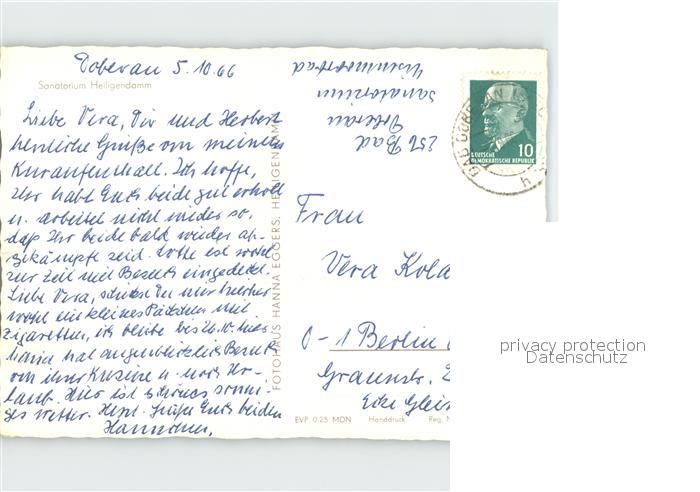 Doberan 5.10.66
Sanatorium Heiligendamm
Liebe Vera, Dir und Herbert
herzliche Grüße von meinem
Kuraufenthalt. Ich hoffe,
Ihr habt Euch beide gut erholt
u. arbeitet nicht wieder so,
daß Ihr beide bald wieder ab-
gekämpft seid. Lotte ist wohl
zur Zeit mit Besuch eingedeckt.
Liebe Vera, schickst Du mir
wohl ein kleines Päckchen mit
Zigaretten, ich bleibe bis 26.10. hier
hat augenblicklich Besuch
von ihrer Kusine u. noch Ur-
laub. Hier ist schönes sonni-
ges Wetter. Herzl. Grüße Euch beiden
Hannchen.
FOTOHAUS HANNA EGGERS, HEILIGENDAMM
252 Bad
Doberan
Sanatorium
Eisenmoorbad
DEUTSCHE
DEMOKRATISCHE REPUBLIK
10
BAD DOBERAN
Frau
Vera Kola
0-1 Berlin
Graunstr.
Ecke Gleim
EVP 0.25 MDN Handdruck Reg. N
privacy protection
Datenschutz